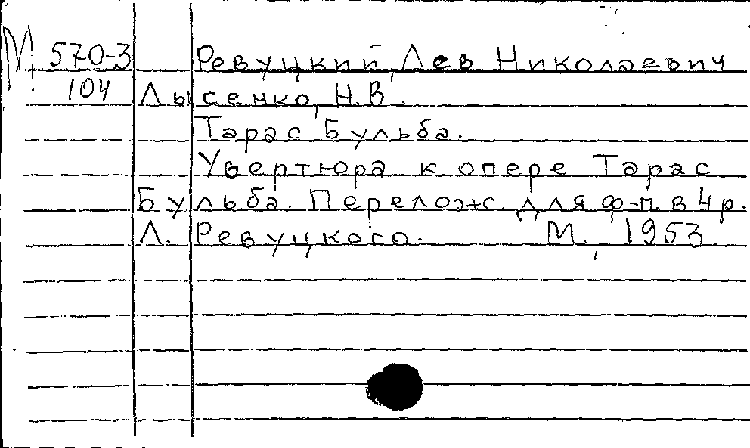 М 570-3 Ревуцкий, Лев Николаевич
104 Лысенко, Н.В.
Тарас Бульба.
Увертюра к опере Тарас
Бульба. Перелож. для ф-п. в 4 р.
Л. Ревуцкого. М., 1953